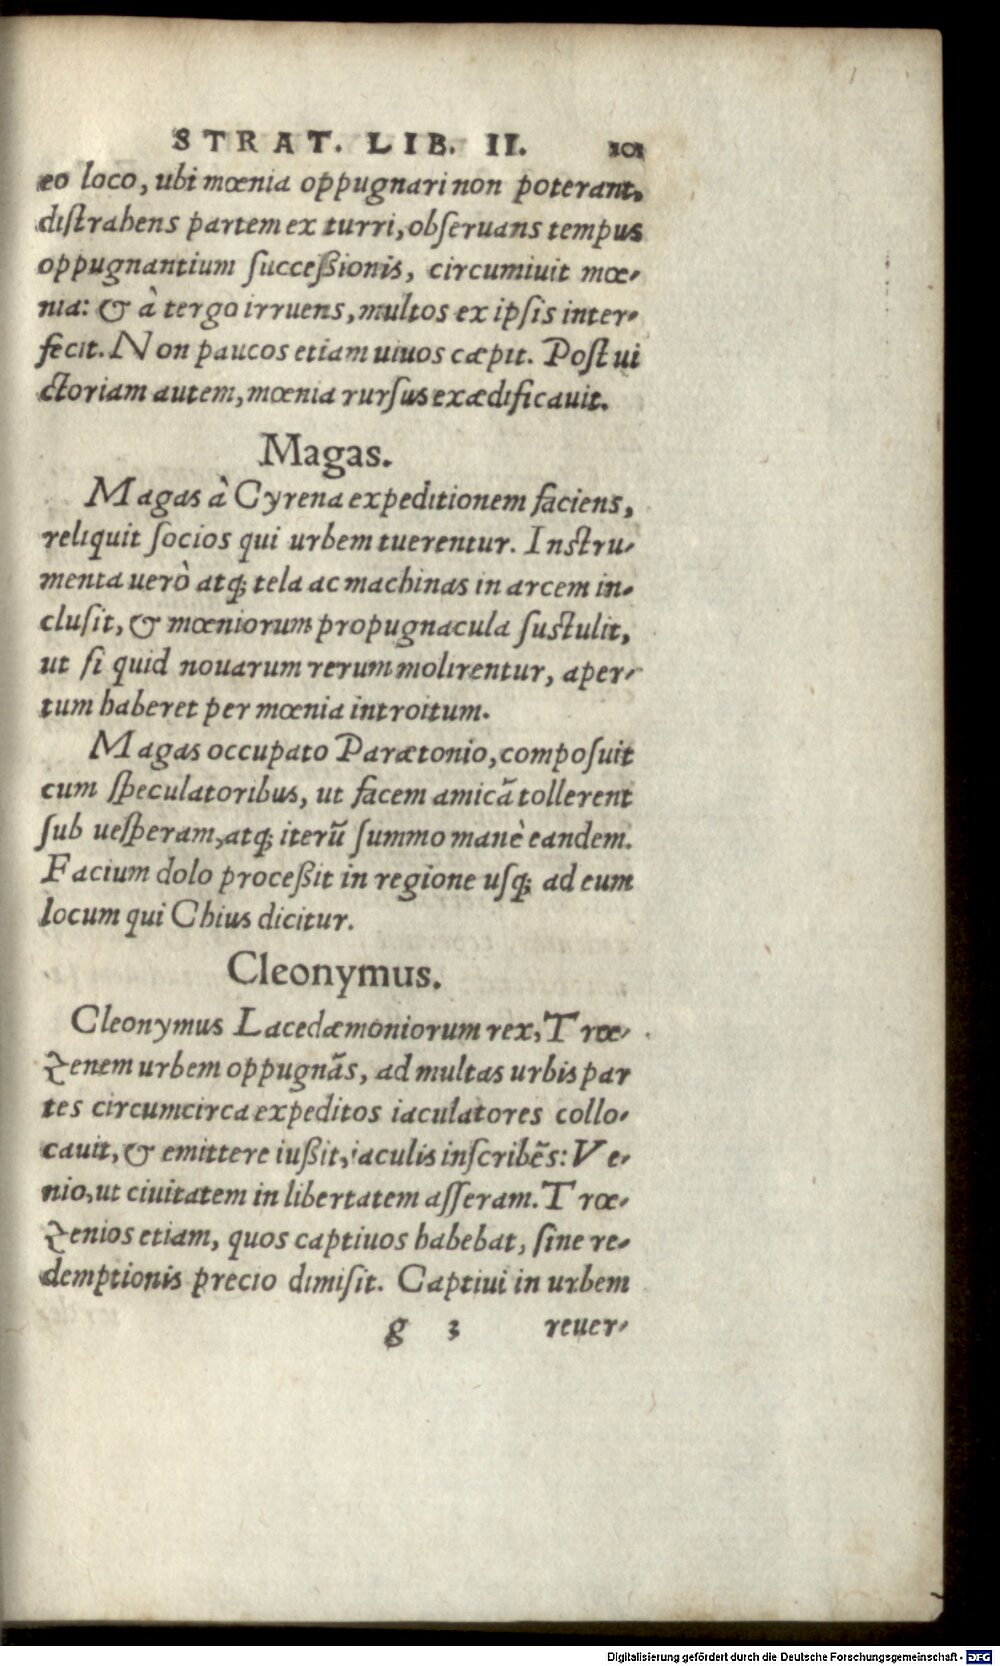 STRAT. LIB. II. 101
eo loco, ubi mœnia oppugnari non poterant,
distrahens partem ex turri, obseruans tempus
oppugnantium succeßionis, circumiuit mœ-
nia: & à tergo irruens, multos ex ipsis inter-
fecit. Non paucos etiam uiuos cæpit. Post ui
ctoriam autem, mœnia rursus exædificauit.
Magas.
Magas à Cyrena expeditionem faciens,
reliquit socios qui urbem tuerentur. Instru-
menta uerò atq; tela ac machinas in arcem in-
clusit, & mœniorum propugnacula sustulit,
ut si quid nouarum rerum molirentur, aper-
tum haberet per mœnia introitum.
Magas occupato Parætonio, composuit
cum speculatoribus, ut facem amicā tollerent
sub uesperam, atq; iterū summo manè eandem.
Facium dolo proceßit in regione usq; ad eum
locum qui Chius dicitur.
Cleonymus.
Cleonymus Lacedæmoniorum rex, Trœ-
zenem urbem oppugnãs, ad multas urbis par
tes circumcirca expeditos iaculatores collo-
cauit, & emittere iußit, iaculis inscribẽs: Ve-
nio, ut ciuitatem in libertatem asseram. Trœ-
zenios etiam, quos captiuos habebat, sine re-
demptionis precio dimisit. Captiui in urbem
g 3 reuer-
Digitalisierung gefördert durch die Deutsche Forschungsgemeinschaft - DFG